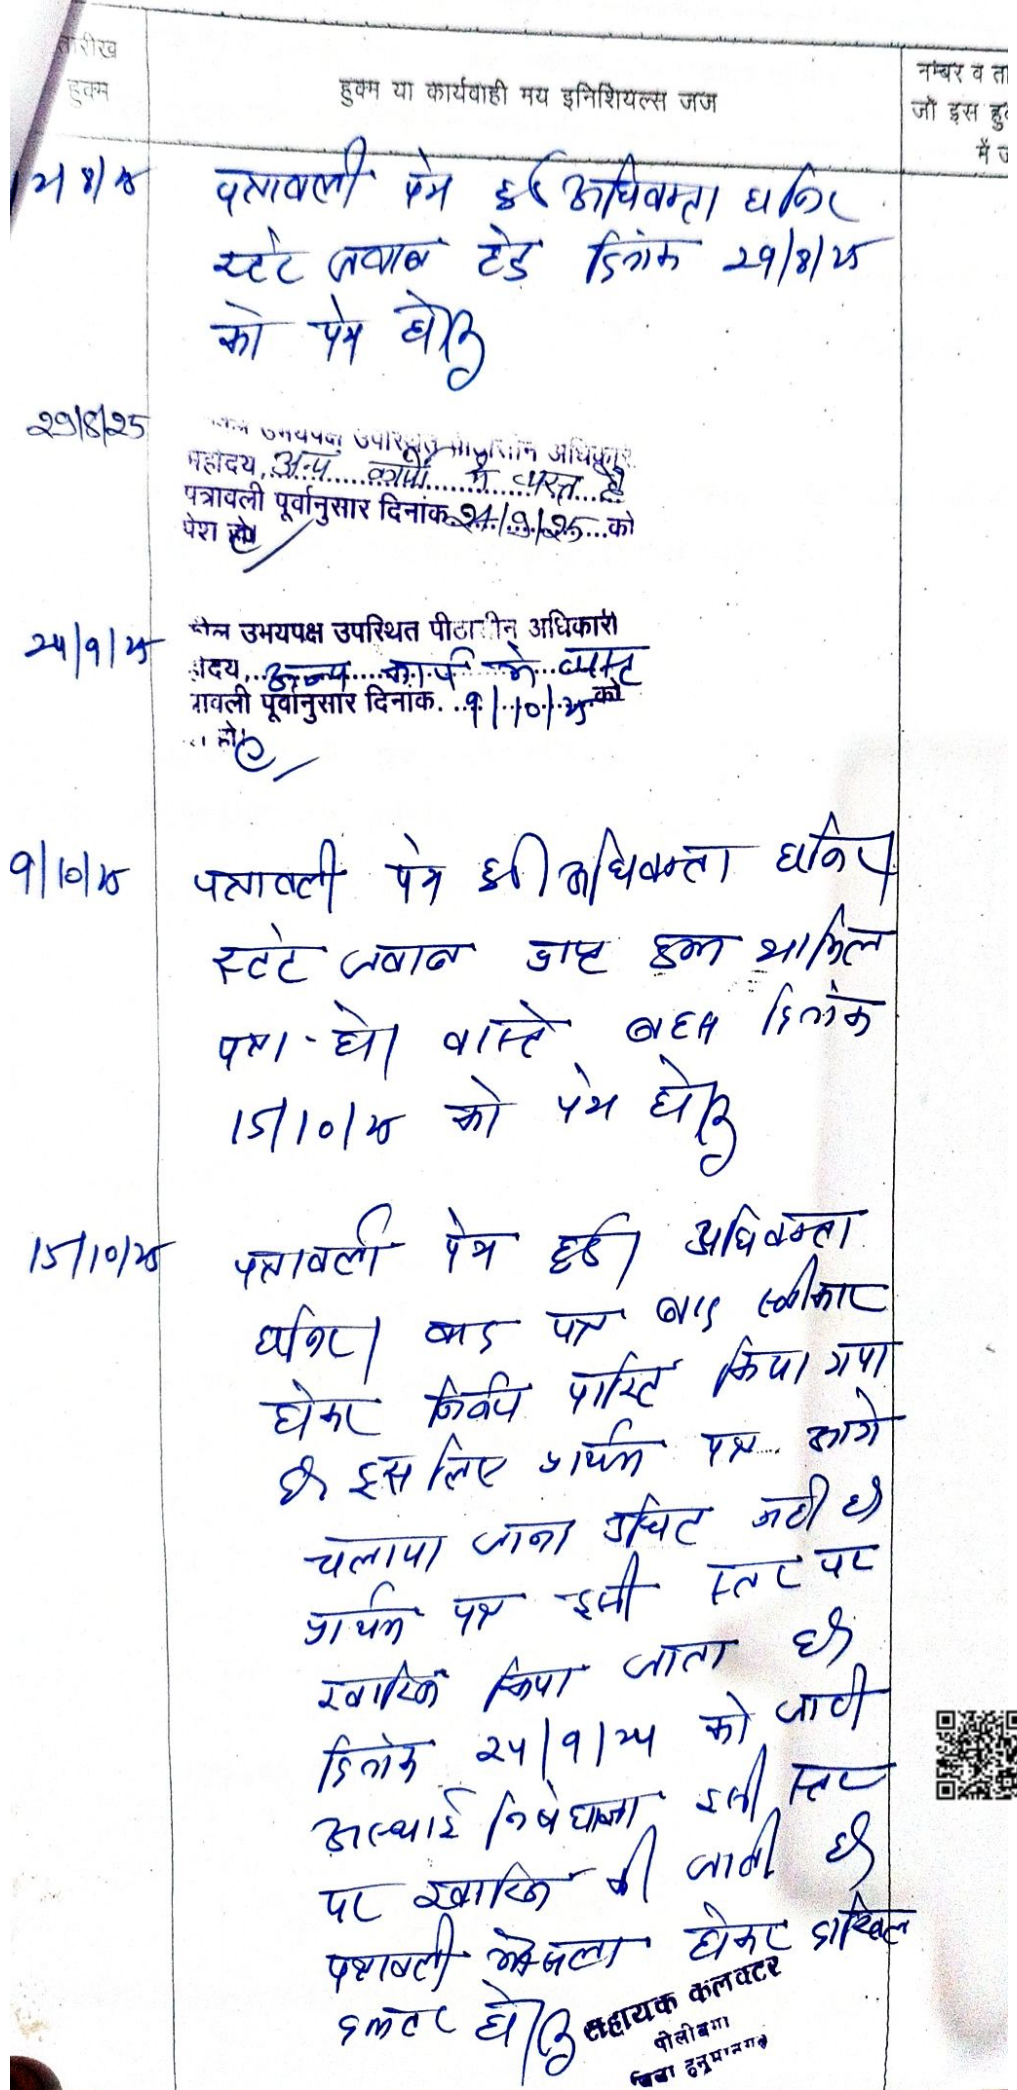 तारीख
हुक्म
हुक्म या कार्यवाही मय इनिशियल्स जज
नम्बर व ता
जो इस हु
में ज
पत्रावली पेश हुई अधिवक्ता हाजिर
स्टेट जवाब हेतु दिनांक 29/8/25
को पेश हो।
29/8/25
उभयपक्ष उपस्थित पीठासीन अधिकारी
महोदय, अन्य कार्यो में व्यस्त है
पत्रावली पूर्वानुसार दिनांक 24/9/25 को
पेश हो।
24/9/25
उभयपक्ष उपस्थित पीठासीन अधिकारी
ोदय, अन्य कार्य में व्यस्त
त्रावली पूर्वानुसार दिनांक. 9/10/25 को
हो।
9/10/25
पत्रावली पेश हुई अधिवक्ता हाजिर
स्टेट जवाब प्राप्त हुआ शामिल
पत्रा. हो। वास्ते बहस दिनांक
15/10/25 को पेश हो।
15/10/25
पत्रावली पेश हुई। अधिवक्ता
हाजिर। वाद पत्र बाद स्वीकार
होकर निर्णय पारित किया गया
है इसलिए प्रार्थना पत्र आगे
चलाया जाना उचित नही है
प्रार्थना पत्र इसी स्तर पर
खारिज किया जाता है
दिनांक 24/9/24 को जारी
अस्थाई निषेधाज्ञा इसी स्तर
पर खारिज की जाती है
पत्रावली फैसला होकर दाखिल
दफ्तर हो।
सहायक कलक्टर
पीलीबंगा
जिला हनुमानगढ़